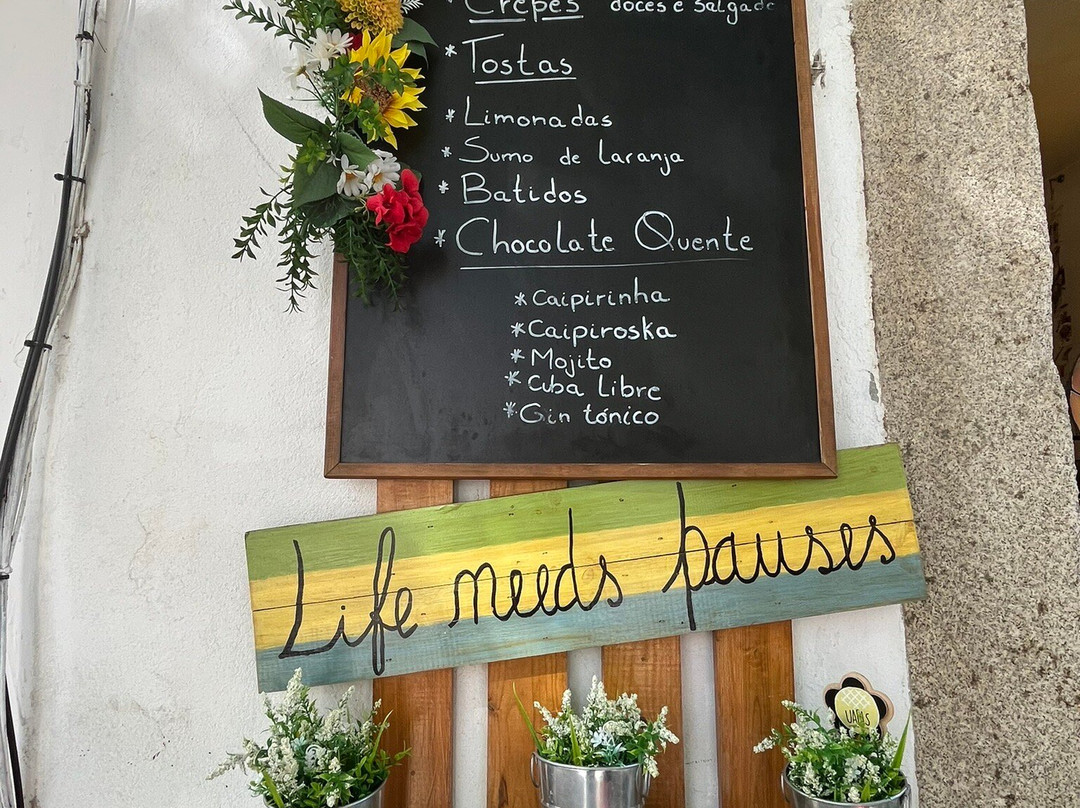 * Crepes doces e salgado
* Tostas
* Limonadas
* Sumo de laranja
* Batidos
* Chocolate Quente
* Caipirinha
* Caipiroska
* Mojito
* Cuba Libre
* Gin tónico
Life needs pauses